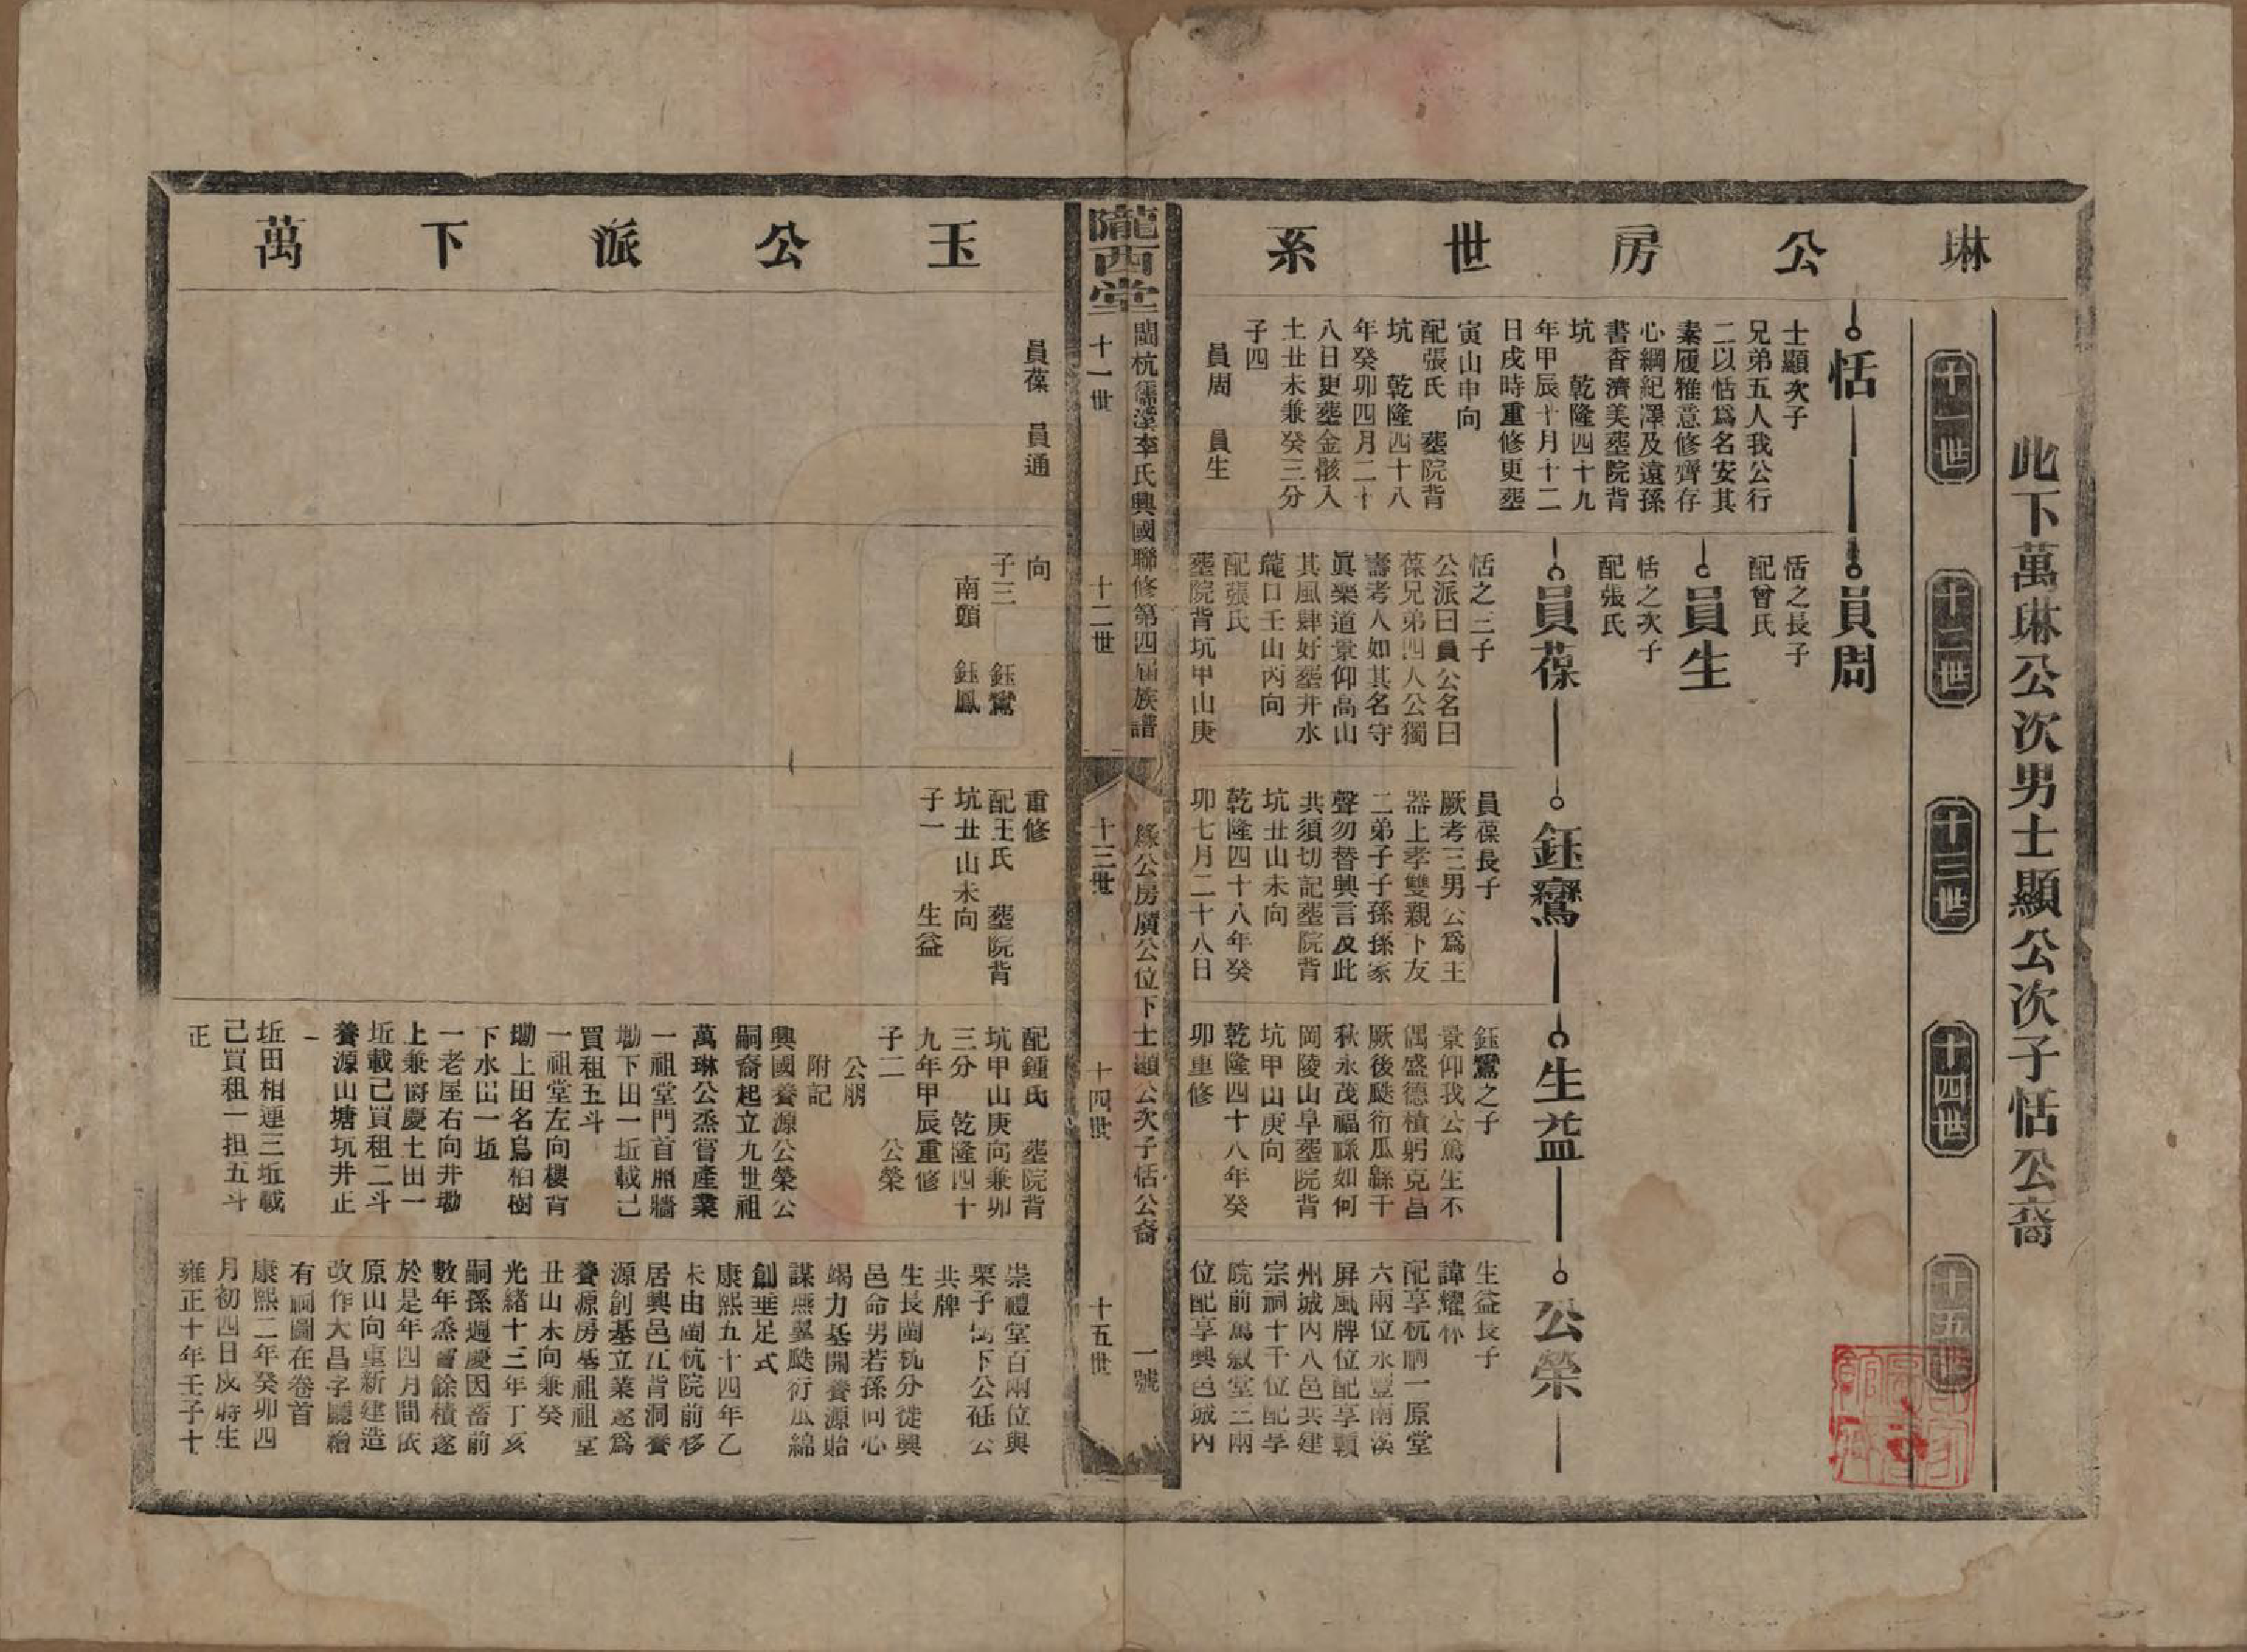 琳公房世系
此下萬琳公次男士顯公次子恬公裔
十一世
十二世
十三世
十四世
十五世
恬
士顯次子
兄弟五人我公行
二以恬爲名安其
素履雅意修齊存
心綱紀澤及遠孫
書香濟美塟院背
坑 乾隆四十九
年甲辰十月十二
日戌時重修更塟
寅山申向
配張氏 塟院背
坑 乾隆四十八
年癸卯四月二十
八日更塟金骸入
土丑未兼癸三分
子四
員周 員生
員周
恬之長子
配曾氏
員生
恬之次子
配張氏
員葆
恬之三子
公派曰員公名曰
葆兄弟四人公獨
壽考人如其名守
眞樂道景仰高山
其風肆好塟井水
龍口壬山丙向
配張氏
塟院背坑甲山庚
鈺鸞
員葆長子
厥考三男公爲主
器上孝雙親下友
二弟子子孫孫家
聲勿替興言及此
共須切記塟院背
坑丑山未向
乾隆四十八年癸
卯七月二十八日
生益
鈺鸞之子
景仰我公篤生不
偶盛德積躬克昌
厥後瓞衍瓜緜千
秋永茂福祿如何
岡陵山阜塟院背
坑甲山庚向
乾隆四十八年癸
卯重修
公榮
生益長子
諱耀林
配享杭祠一原堂
六兩位永豐南溪
屏風牌位配享贛
州城內八邑共建
宗祠十千位配享
院前萬敘堂三兩
位配享興邑城內
隴西堂
閩杭儒溪李氏興國聯修第四屆族譜
綠公房廣公位下士顯公次子恬公裔
一號
十一世
十二世
十三世
十四世
十五世
玉公派下萬
員葆 員通
向
子三 鈺鸞
南頭 鈺鳳
重修
配王氏 塟院背
坑丑山未向
子一 生益
配鍾氏 塟院背
坑甲山庚向兼卯
三分 乾隆四十
九年甲辰重修
子二 公榮
公朋
附記
興國養源公榮公
嗣裔起立九世祖
萬琳公烝嘗產業
一祖堂門首照牆
墈下田一坵載己
買租五斗
一祖堂左向樓背
墈上田名烏桕樹
下水田一坵
一老屋右向井墈
上兼衕慶土田一
坵載己買租二斗
養源山塘坑井正
一
坵田相連三坵載
己買租一担五斗
正
崇禮堂百兩位與
栗子下公砡公
共牌
生長閩杭分徙興
邑命男若孫同心
竭力基開養源貽
謀燕翼瓞衍瓜綿
創垂足式
康熙五十四年乙
未由閩杭院前移
居興邑江背洞養
源創基立業遂爲
養源房基祖祖堂
丑山未向兼癸
光緒十三年丁亥
嗣孫週慶因畜前
數年烝嘗餘積遂
於是年四月間依
原山向重新建造
改作大昌字廳繪
有祠圖在卷首
康熙二年癸卯四
月初四日戌時生
雍正十年壬子十